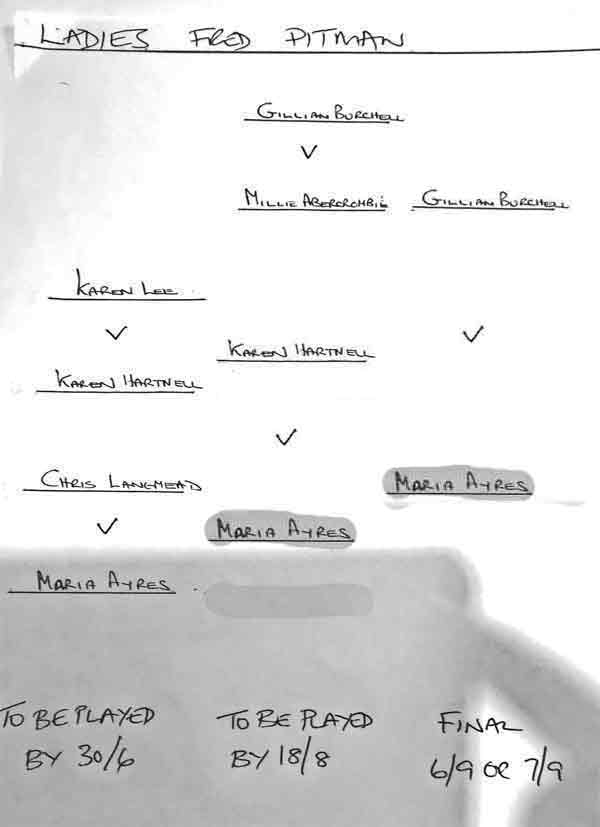 LADIES FRED PITMAN
GILLIAN BURCHELL
V
MILLIE ABERCROMBIE GILLIAN BURCHELL
KAREN LEE
V
V
KAREN HARTNELL
KAREN HARTNELL
V
CHRIS LANGMEAD
MARIA AYRES
V
MARIA AYRES
MARIA AYRES
TO BE PLAYED
BY 30/6
TO BE PLAYED
BY 18/8
FINAL
6/9 OR 7/9